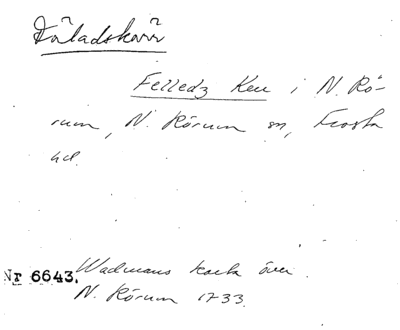 Fäladskärr
Felledz Kerr i N. Rö-
rum, N. Rörum sn, Frosta
hd.
Nr 6643. Wadmans karta över
N. Rörum 1733.